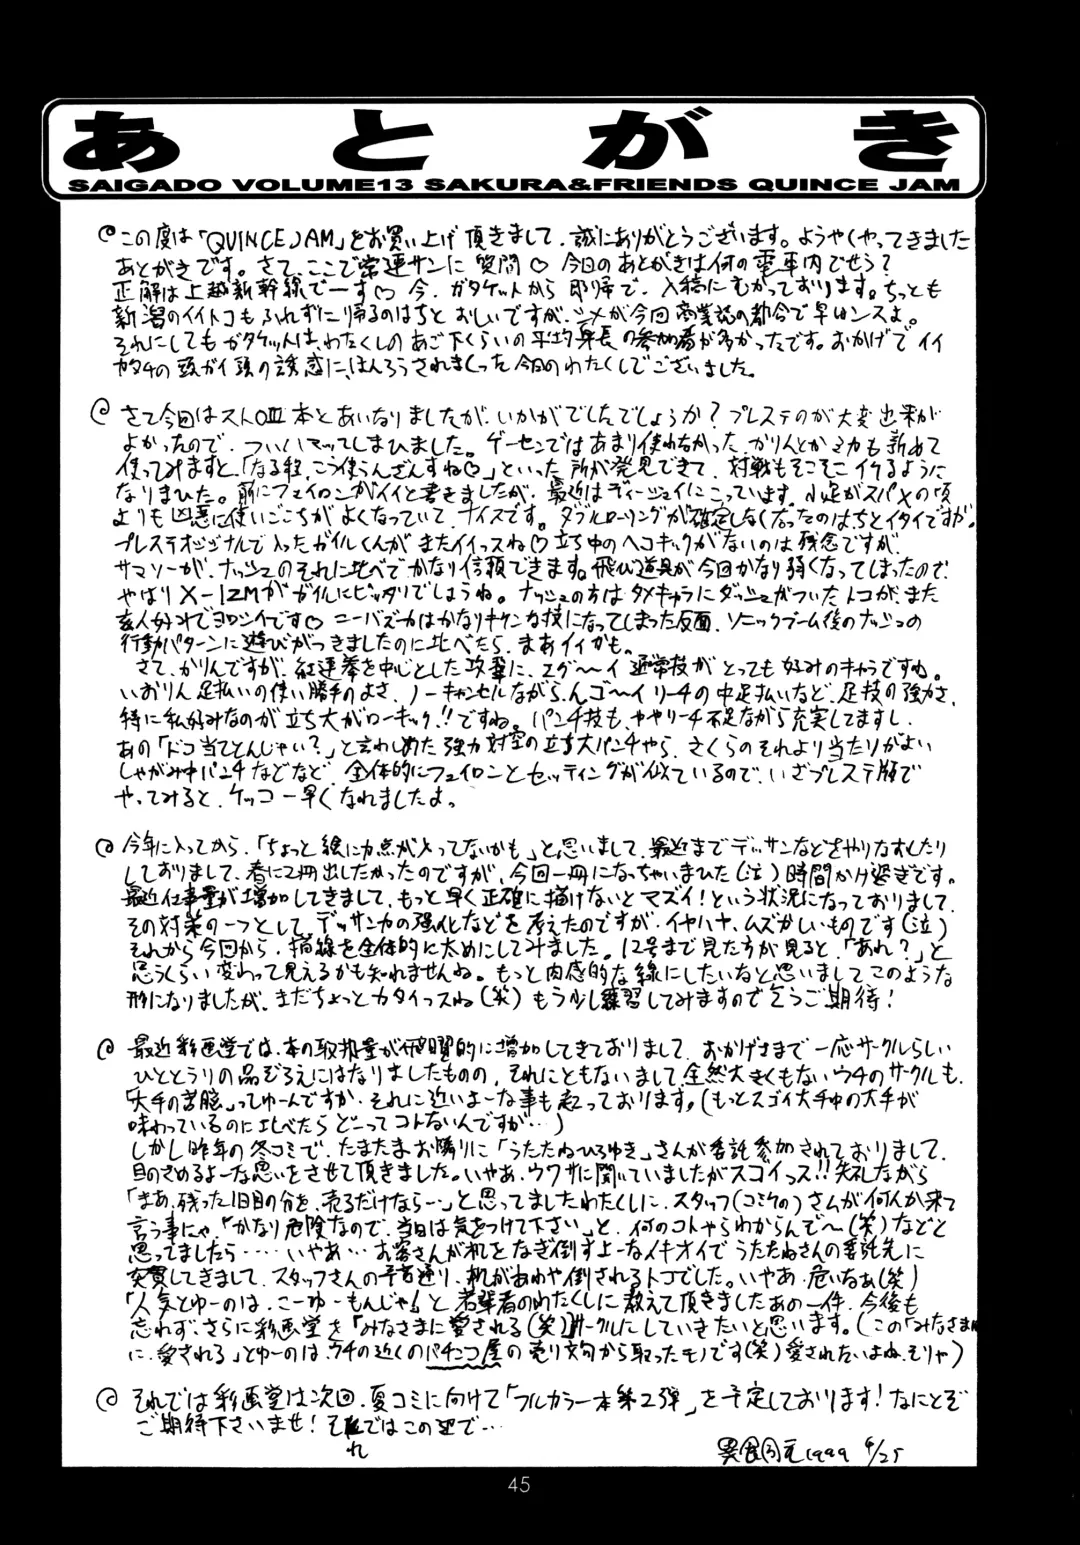 あとがき
SAIGADO VOLUME13 SAKURA&FRIENDS QUINCE JAM
この度は「QUINCE JAM」をお買い上げ頂きまして、誠にありがとうございます。ようやくやってきました
あとがきです。さて、ここで常連サンに質問♡今日のあとがきは何の電車内でせう?
正解は上越新幹線でーす♡今、ガタケットから即帰で、入稿にむかっております。ちっとも
新潟のイイトコもふれずに帰るのはちとおしいですが、シメが今回商業誌の都合で早いンスよ。
それにしてもガタケットは、わたくしのあご下くらいの平均身長の参加者が多かったです。おかげでイイ
カタチの頭がイ強の誘惑に、ほんろうされまくった今日のわたくしでございました。
さて今回はストⅡ本とあいなりましたが、いかがでしたでしょうか?プレステのが大変出来が
よかったので、ついハマッてしまひました。ゲーセンではあまり使わなかった、かりんとかミカも新めて
使ってみますと、「なる程、こう使うんざんすね♡」といった所が発見できて、対戦もそこそこイケるように
なりまひた。前にフェイロンがイイと書きましたが、最近はディージェイにこっています。小足がスパXの頃
よりも凶悪に使いごこちがよくなっていて、ナイスです。ダブルローリングが確定しなくなったのはちとイタイですが。
プレステオリジナルで入ったガイルくんが、またイイっスね♡立ち中のヘコキックがないのは残念ですが、
サマソーが、ナッシュのそれに比べてかなり信頼できます。飛び道具が今回かなり弱くなってしまったので、
やはりX-ISMがガイルにピッタリでしょうね。ナッシュの方はタメキャラにダッシュがついたトコが、また
玄人好みでヨロシイです♡ニーバズーカはかなりキケンな技になってしまった反面、ソニックブーム後のナッシュの
行動パターンに遊びがつきましたのに比べたら、まあイイかも。
さて、かりんですが、紅蓮拳を中心とした攻撃に、エグ〜イ通常技がとっても好みのキャラですね。
いおりん足払いの使い勝手のよさ、ノーキャンセルながら、んゴ〜イリーチの中足払いなど、足技の強力さ、
特に私好みなのが立ち大がローキック!!ですね。パンチ技も、ややリーチ不足ながら充実してますし、
あの「ドコ当てとんじゃい?」と言わしめた強力対空の立ち大パンチやら、さくらのそれより当たりがよい
しゃがみ中パンチなどなど、全体的にフェイロンとセッティングが似ているので、いざプレステ版で
やってみると、ケッコー早くなれましたよ。
今年に入ってから、「ちょっと絵に力点が入ってないかも」と思いまして、最近までデッサンなどをやりなおしたり
しておりまして、春に2冊出したかったのですが、今回一冊になっちゃいまひた(泣)時間かけ過ぎです。
最近仕事量が増加してきまして、もっと早く正確に描けないとマズイ!という状況になっておりまして、
その対策の一つとして、デッサン力の強化などを考えたのですが、イヤハヤ、ムズかしいものです(泣)
それから今回から、描線を全体的に太めにしてみました。12号まで見た方が見ると、「あれ?」と
思うくらい変わって見えるかも知れませんね。もっと肉感的な線にしたいなと思いまして、このような
形になりましたが、まだちょっとカタイっスね(笑)もう少し練習してみますので乞うご期待!
最近彩画堂では、本の取扱量が飛躍的に増加してきておりまして、おかげさまで一応サークルらしい
ひととうりの品ぞろえにはなりましたものの、それにともないまして全然大きくもないウチのサークルも、
「大手の苦脳」ってゆーんですか、それに近いよーな事も起っております。(もっとスゴイ大手中の大手が
味わっているのに比べたらどーってコトないんですが…)
しかし昨年の冬コミで、たまたまお隣りに「うたたねひろゆき」さんが委託参加されておりまして、
目のさめるよーな思いをさせて頂きました。いやあ、ウワサに聞いていましたがスゴイっス!!失礼ながら
「まあ、残った1日目の分を、売るだけなら…」と思ってましたわたくしに、スタッフ(コミケの)さんが何人か来て
言う事にゃ「かなり危険なので、当日は気をつけて下さい」と、何のコトやらわからんで〜(笑)などと
思ってましたら……いやあ…お客さんが机をなぎ倒すよーなイキオイでうたたねさんの委託先に
突貫してきまして、スタッフさんの予言通り、机があわや倒されるトコでした。いやあ、危いなぁ(笑)
「人気とゆーのは、こーゆーもんじゃ!」と若輩者のわたくしに教えて頂きましたあの一件、今後も
忘れず、さらに彩画堂を「みなさまに愛される(笑)」サークルにしていきたいと思います。(この「みなさま
に、愛される」とゆーのは、ウチの近くのパチンコ屋の売り文句から取ったモノです(笑)愛されたいよね、そりゃ)
それでは彩画堂は次回、夏コミに向けて「フルカラー本第2弾」を予定しております!なにとぞ
ご期待下さいませ!それではこの辺で…
れ
1999 4/25
45